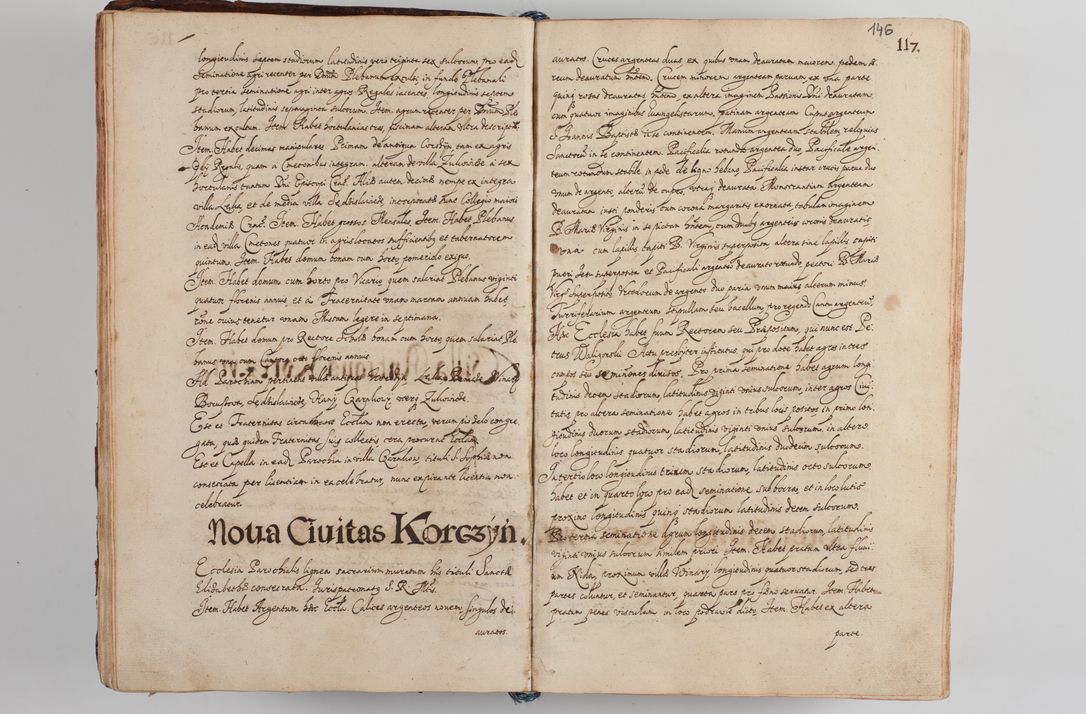 longitudinis septem stadiorum latitudinis vero triginta sex sulcorum, pro ead.
seminatione agri recenter per Dnum Plebanum exculti in fundo Plebanali
pro tercia seminatione agri inter agros Regales iacentes longitudinis septem
stadiorum, latitudinis septuaginta sulcorum. Item agrum recenter per Dnum Ple
banum excultum. Item Habet hortulanias tres, piscinam alteram ultra descriptã.
Item Habet decimas manipulares Primam de antiqua Corczin tam ex agris
Regalis, quam a Cmetonibus integram. alteram de villa Zukowice a sex
hortulanis tantum Dni Episcopi Crac. Aliæ autem decimæ nempe ex integra
villa et de media villa Sędzisławice, incorporatæ sunt Collegio maiori
Academiæ Crac. Item Habet Mensalia, Item Habet Plebanus
in ead. villa Cmetones quatuor in agris locatos sufficientib. et tabernatorem
quintum. Item Habet domum bonam cum horto pomerido exiguo.
Item Habet domum cum horto pro Vicario quem salariat Plebanus viginti
quatuor florenis annuis, et a Fraternitate unam marcam annuam habet
rõne cuius tenetur unam Missam legere in septimana.
Item Habet domum pro Rectore Scholæ bonam cum horto, quem salariat Ple
banus una cum Cantore octo florenis annuis.
Ad Parochiam pertinent villæ antiqua
Sędzisławice, Czarkowy Zukowice.
Est et Fraternitas circa Ecclam non erecta, verum
gata, quæ quidem Fraternitas suis collectis cera procurat Ecclam.
Est et Capella in ead. Parochia in villa Czarkow, tituli S. Sophiæ non
consecrata per licentiam in ea celebratur, nunc expirante licentia non
celebratur.
Noua Ciuitas Korczyn.
Ecclesia Parochialis lignea sacrarium muratum his tituli Sanctæ
Elizabethæ consecrata. Iurispatronatus S. R. Mtis.
Item Habet Argentum hæc Eccla. Calices argenteos novem singulos de
auratos.
146
117.
auratos. Cruces argenteas duas, ex quibus unam deauratam maiorem, pedem
reum deauratum hntem, Crucem minorem argenteam parvam, ex una parte
quinq. rosas deauratas hntem, ex altera imaginem Passionis Dni deauratam
cum quatuor imaginibus Evangelistarum, patinam argenteam Caput argenteum
S. Joannis Baptistæ in se continentem. Manum argenteam stabilem reliquias
Sanctorum in se continentem. Pacificalia rotunda argentea duo, Pacificale argen
teum rotundum stabile, in pede de ligno Pacificalia instar crucis parva duo
unum de argento, alterum de cupro, utraq. deaurata. Monstrantiam argenteam
deauratam iusti ponderis cum corona margaritis exornata, tabulam imaginem
B. Mariæ Virginis in se pictam hntem, cum argenteis coronis deauratis,
una cum lapillis capiti B. Virginis superposita, altera sine lapillis capiti
pueri Iesu superposita et Pacificali argenteo deaurato rotundo, pectori B. Mariæ
Virg. superposito. Urceolorum de argento duo paria unum maius alterum minus.
Turribularium argenteum scipullam seu bacellum, pro regendo Cantu argenteum.
Hæc Ecclesia habet suum Rectorem seu Præpositum, qui nunc est Pe
trus Waligorski Actu presbyter institutus, qui pro dote habet agros in tres
campos seu seminationes divisos. Pro prima seminatione habet agrum longi
tudinis decem stadiorum, latitudinis viginti unius sulcorum, inter agros Civi
tatis, pro altera seminatione habet agros in tribus locis positos in primo lon
gitudinis duorum stadiorum, latitudinis viginti unius sulcorum, in altero
loco longitudinis quatuor stadiorum, latitudinis duodecim sulcorum.
In tertio loco longitudinis trium stadiorum, latitudinis octo sulcorum.
habet et in quarto loco pro ead. seminatione sub et in loco lutis
proximo longitudinis quinq. stadiorum latitudinis decem sulcorum.
Pro tertia seminatione agrum longitudinis decem stadiorum, latitudinis
viginti unius sulcorum similem priori. Item Habet pratum ultra fluvi
um Nidam proximum villæ Winiary, longitudinis quatuor stadiorum, ad tres
partes coluntur, et seminantur, quarta pars pro fæno servatur. Item Habet
pratum penes Vistulam in loco podrawie dicto. Item Habet ex altera
parte